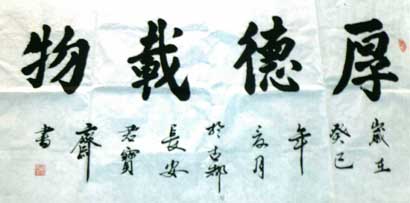 厚德載物
歲在
癸巳
年
夏月
於古都
長安
君寶
齋
書